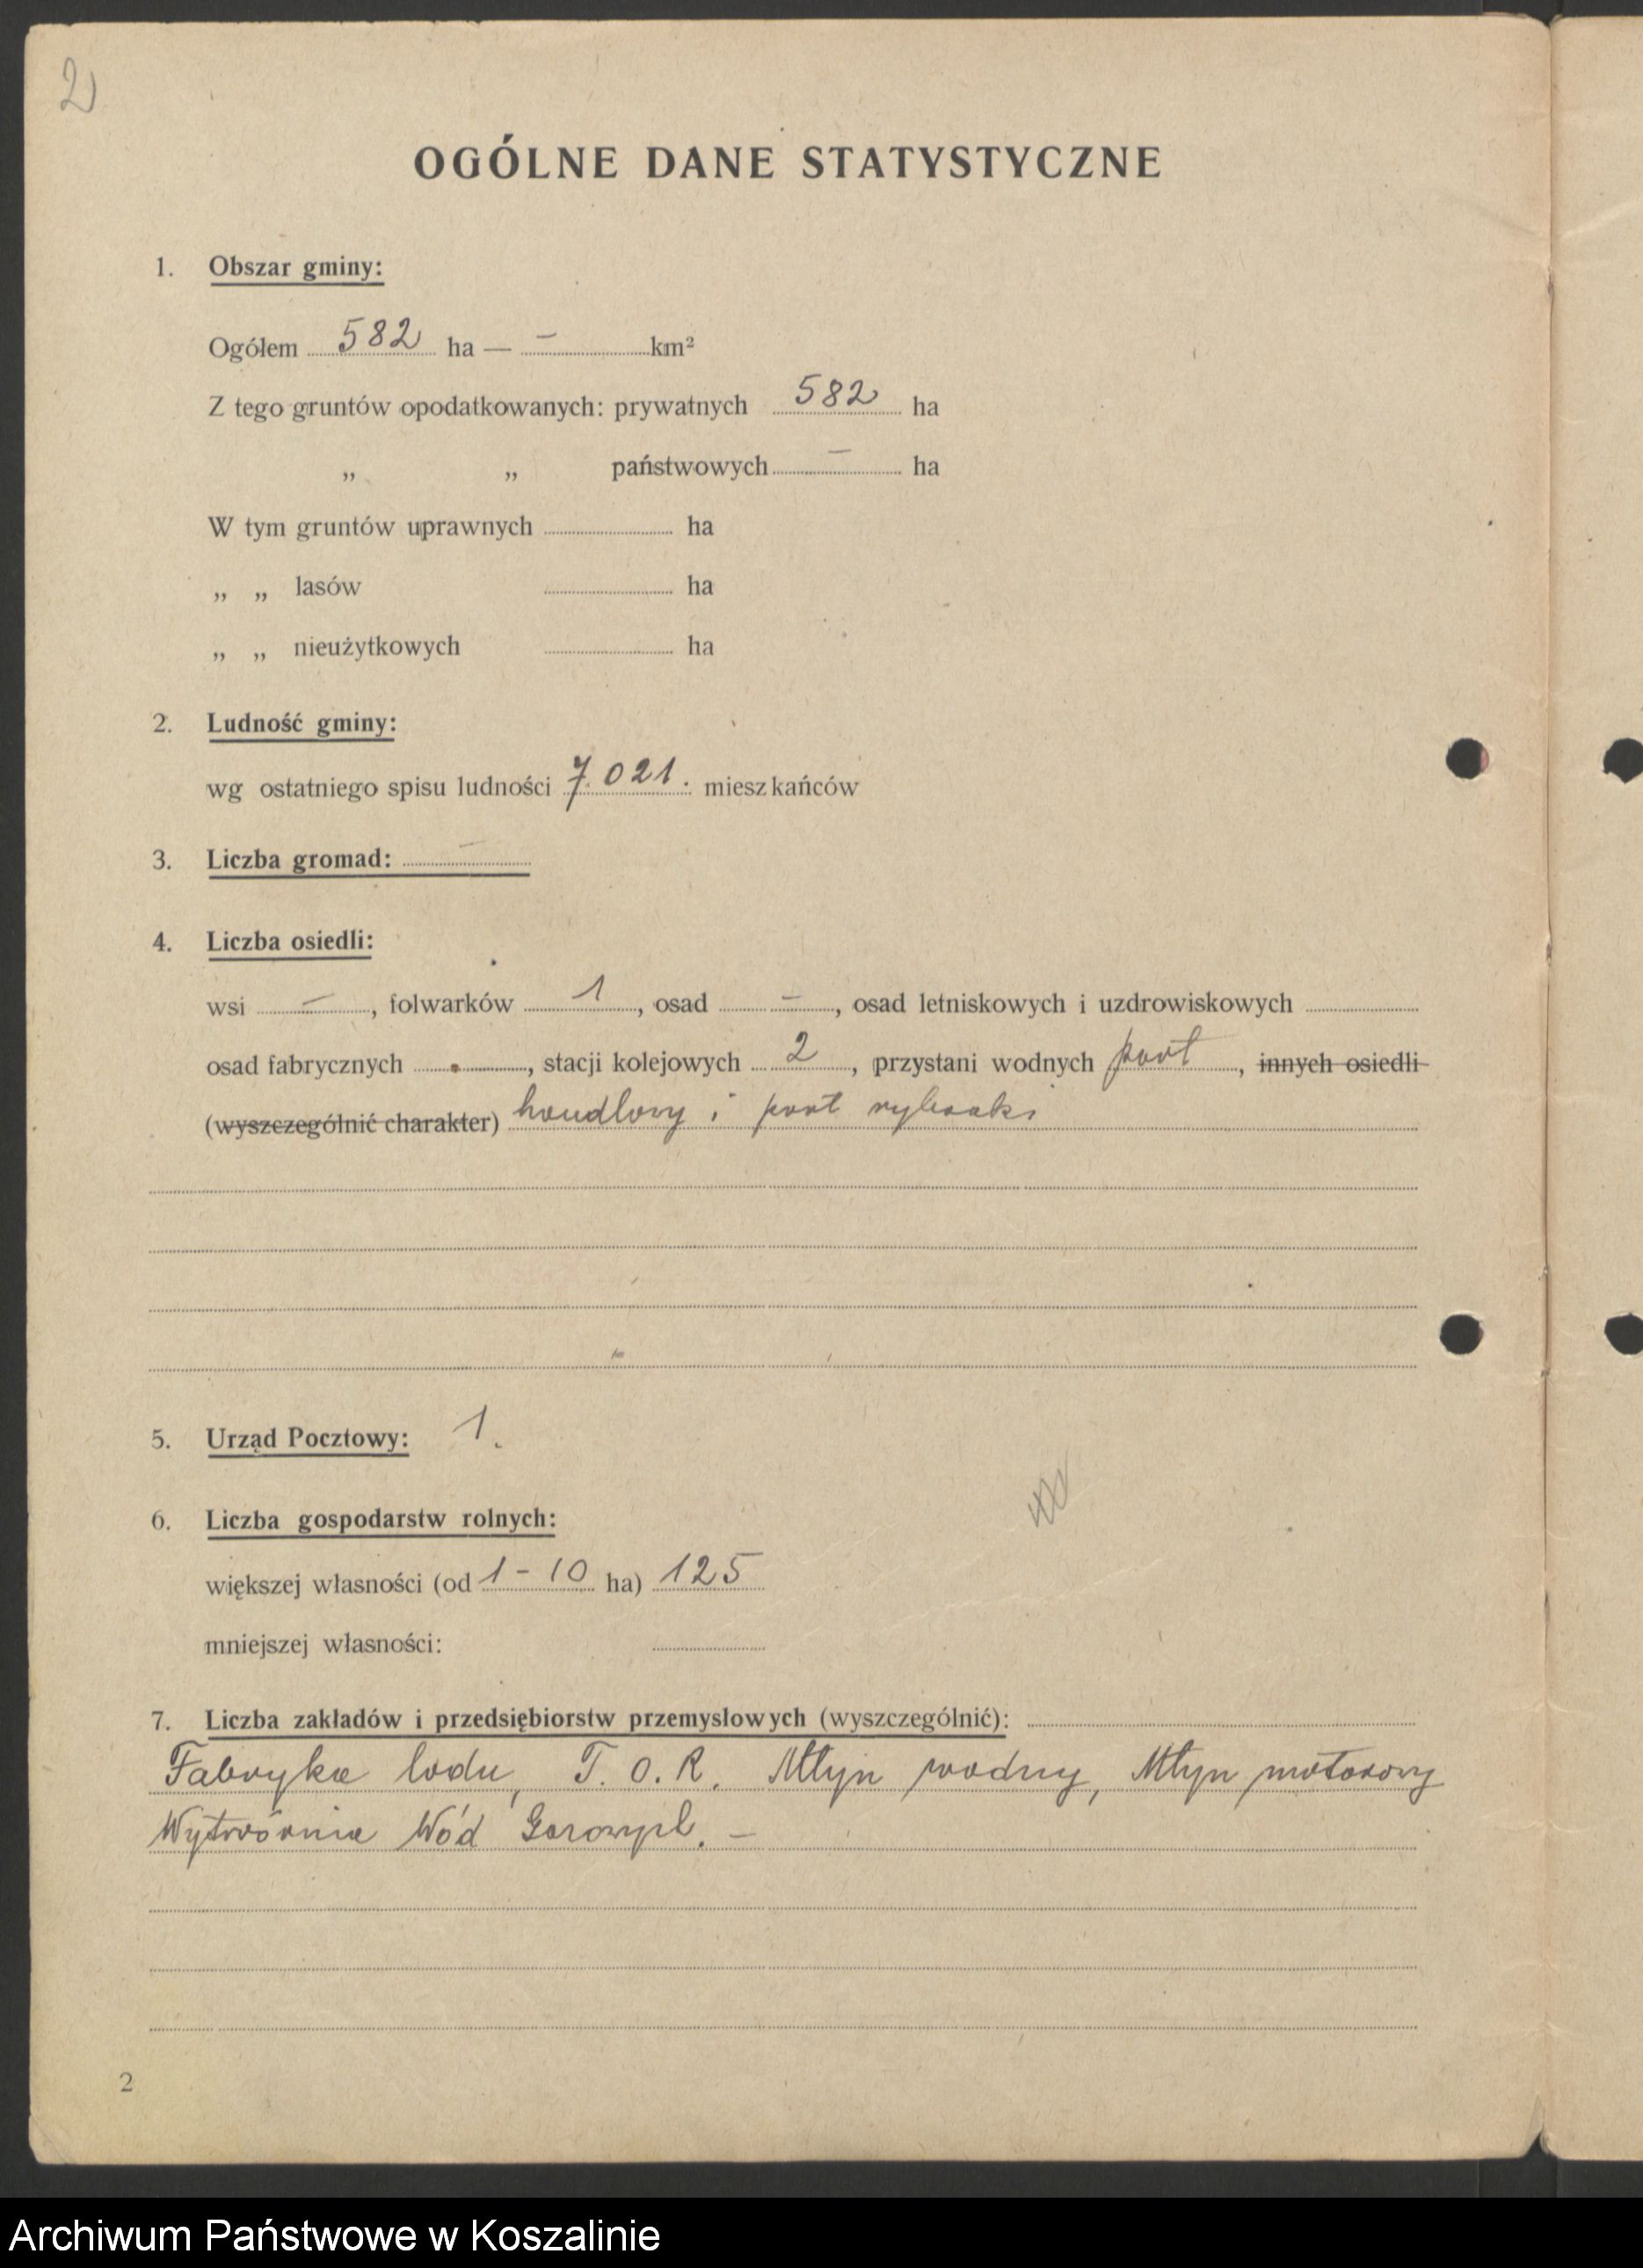 2
OGÓLNE DANE STATYSTYCZNE
1. Obszar gminy:
Ogółem 582 ha — – km²
Z tego gruntów opodatkowanych: prywatnych 582 ha
„ „ państwowych – ha
W tym gruntów uprawnych ha
„ „ lasów ha
„ „ nieużytkowych ha
2. Ludność gminy:
wg ostatniego spisu ludności 7.021. mieszkańców
3. Liczba gromad: –
4. Liczba osiedli:
wsi –, folwarków 1, osad –, osad letniskowych i uzdrowiskowych
osad fabrycznych ., stacji kolejowych 2, przystani wodnych port, innych osiedli
(wyszczególnić charakter) handlowy i port rybacki
5. Urząd Pocztowy: 1.
6. Liczba gospodarstw rolnych:
większej własności (od 1-10 ha) 125
mniejszej własności:
7. Liczba zakładów i przedsiębiorstw przemysłowych (wyszczególnić):
Fabryka lodu, T.O.R. Młyn wodny, Młyn motorowy
Wytwórnia Wód –
2
Archiwum Państwowe w Koszalinie